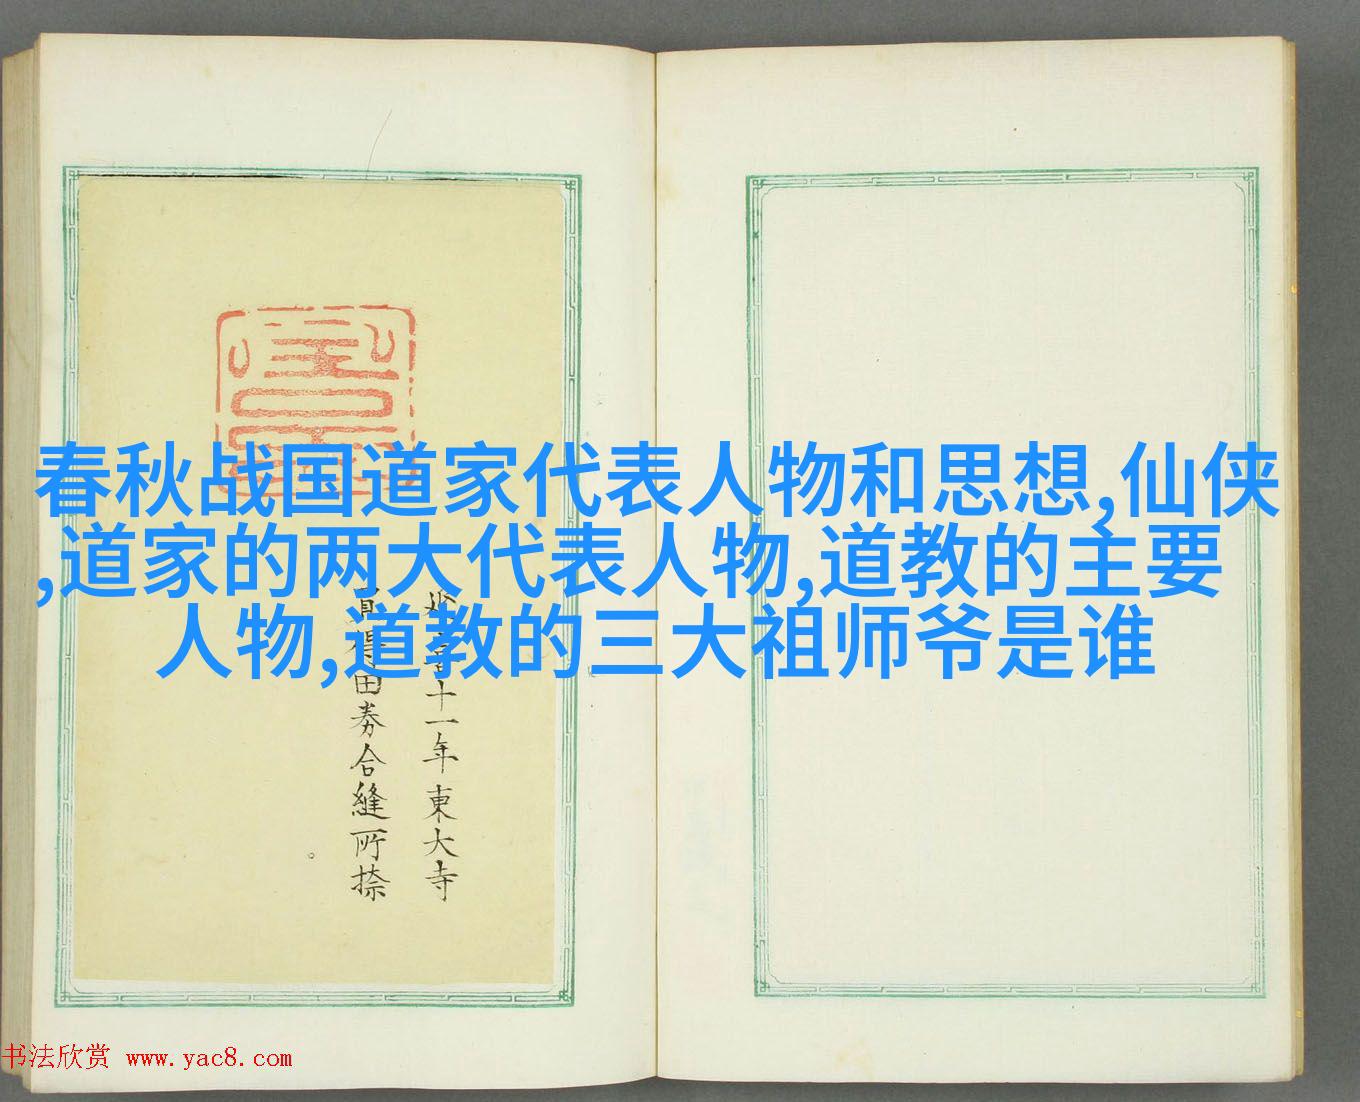 春秋战国道家代表人物和思想,仙侠
,道家的两大代表人物,道教的主要
人物,道教的三大祖师爷是谁
十一年東大寺
田券合縫所捺
书法欣赏 www.yac8.com